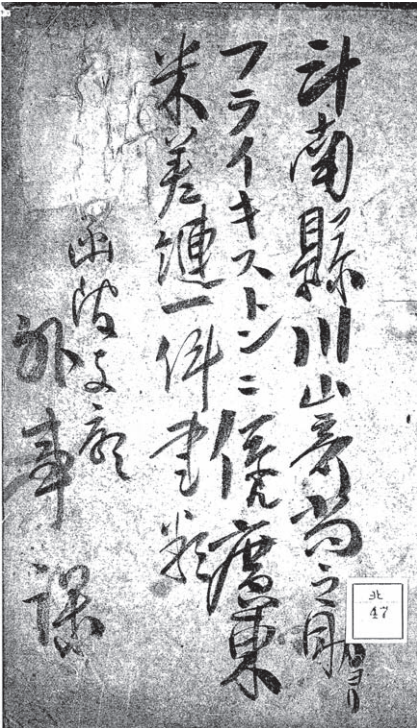 斗南縣川嵜尚之助ヨリ
フライキストンニ係ル廣東
米差縺一件書類
函館支廳
外事課
北
47